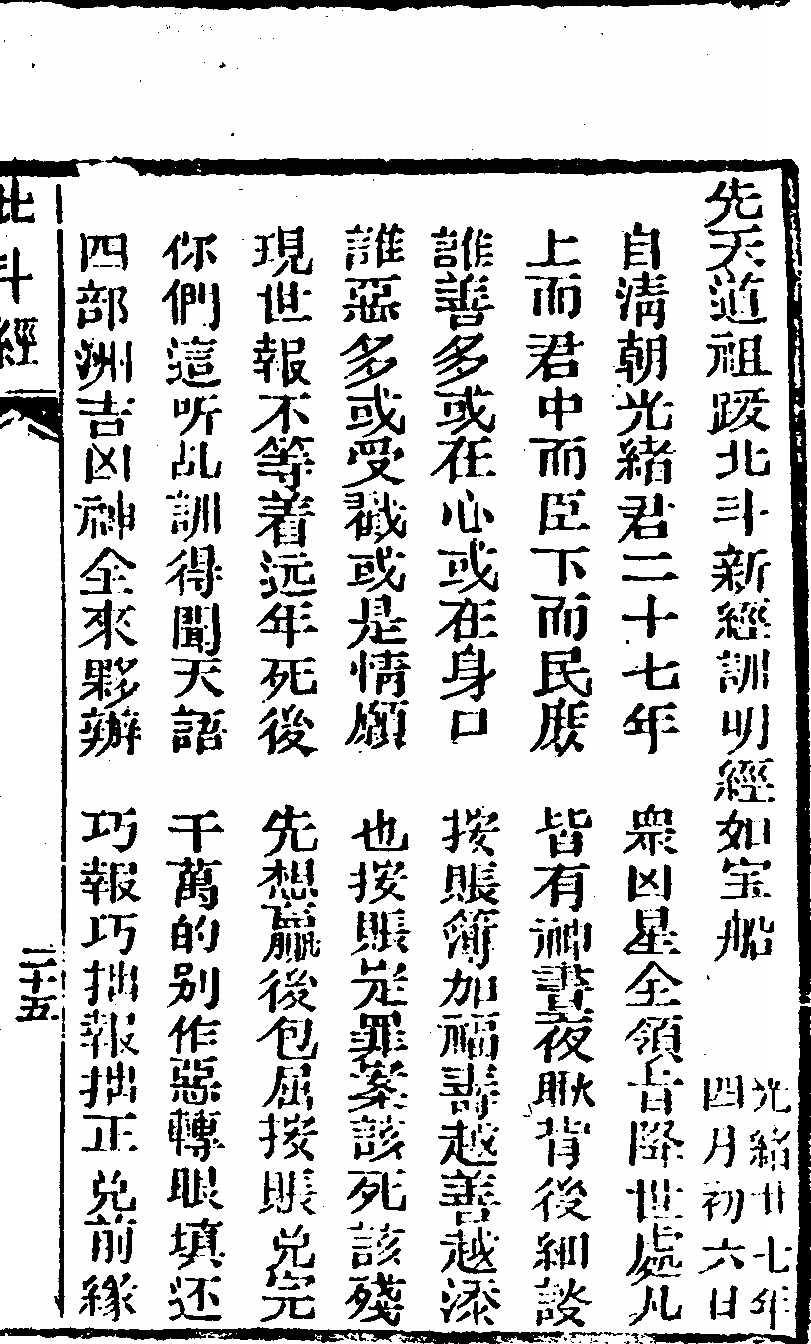 先天道祖跋北斗新經訓明經如宝船
光緒廿七年
四月初六日
自清朝光緒君二十七年　衆凶星全領旨降世處凡
上而君中而臣下而民庶　皆有神晝夜耿背後細談
誰善多或在心或在身口　按賬簿加福壽越善越添
誰惡多或受戳或是情願　也按賬定罪案該死該殘
現世報不等着远年死後　先想贏後包屈按賬兑完
你們這听乩訓得聞天語　千萬的别作惡轉眼填还
四部洲吉凶神全來夥辦　巧報巧拙報拙正兑前緣
北斗經
二十五